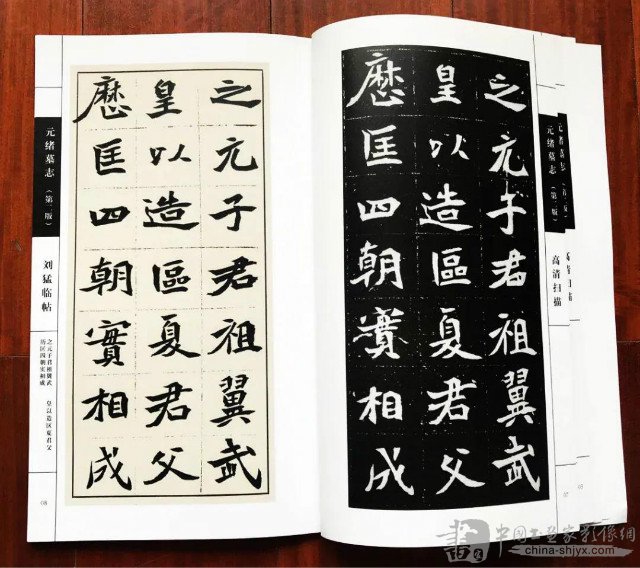 之元子君祖翼武
皇以造區夏君父
歷匡四朝實相成
元绪墓志（第二版）
刘猛临帖
之元子君祖翼武 皇以造区夏君父
历匡四朝实相成
08
之元子君祖翼武
皇以造區夏君父
歷匡四朝實相成
元绪墓志（第二版）
高清扫描
07
china-shjyx.com